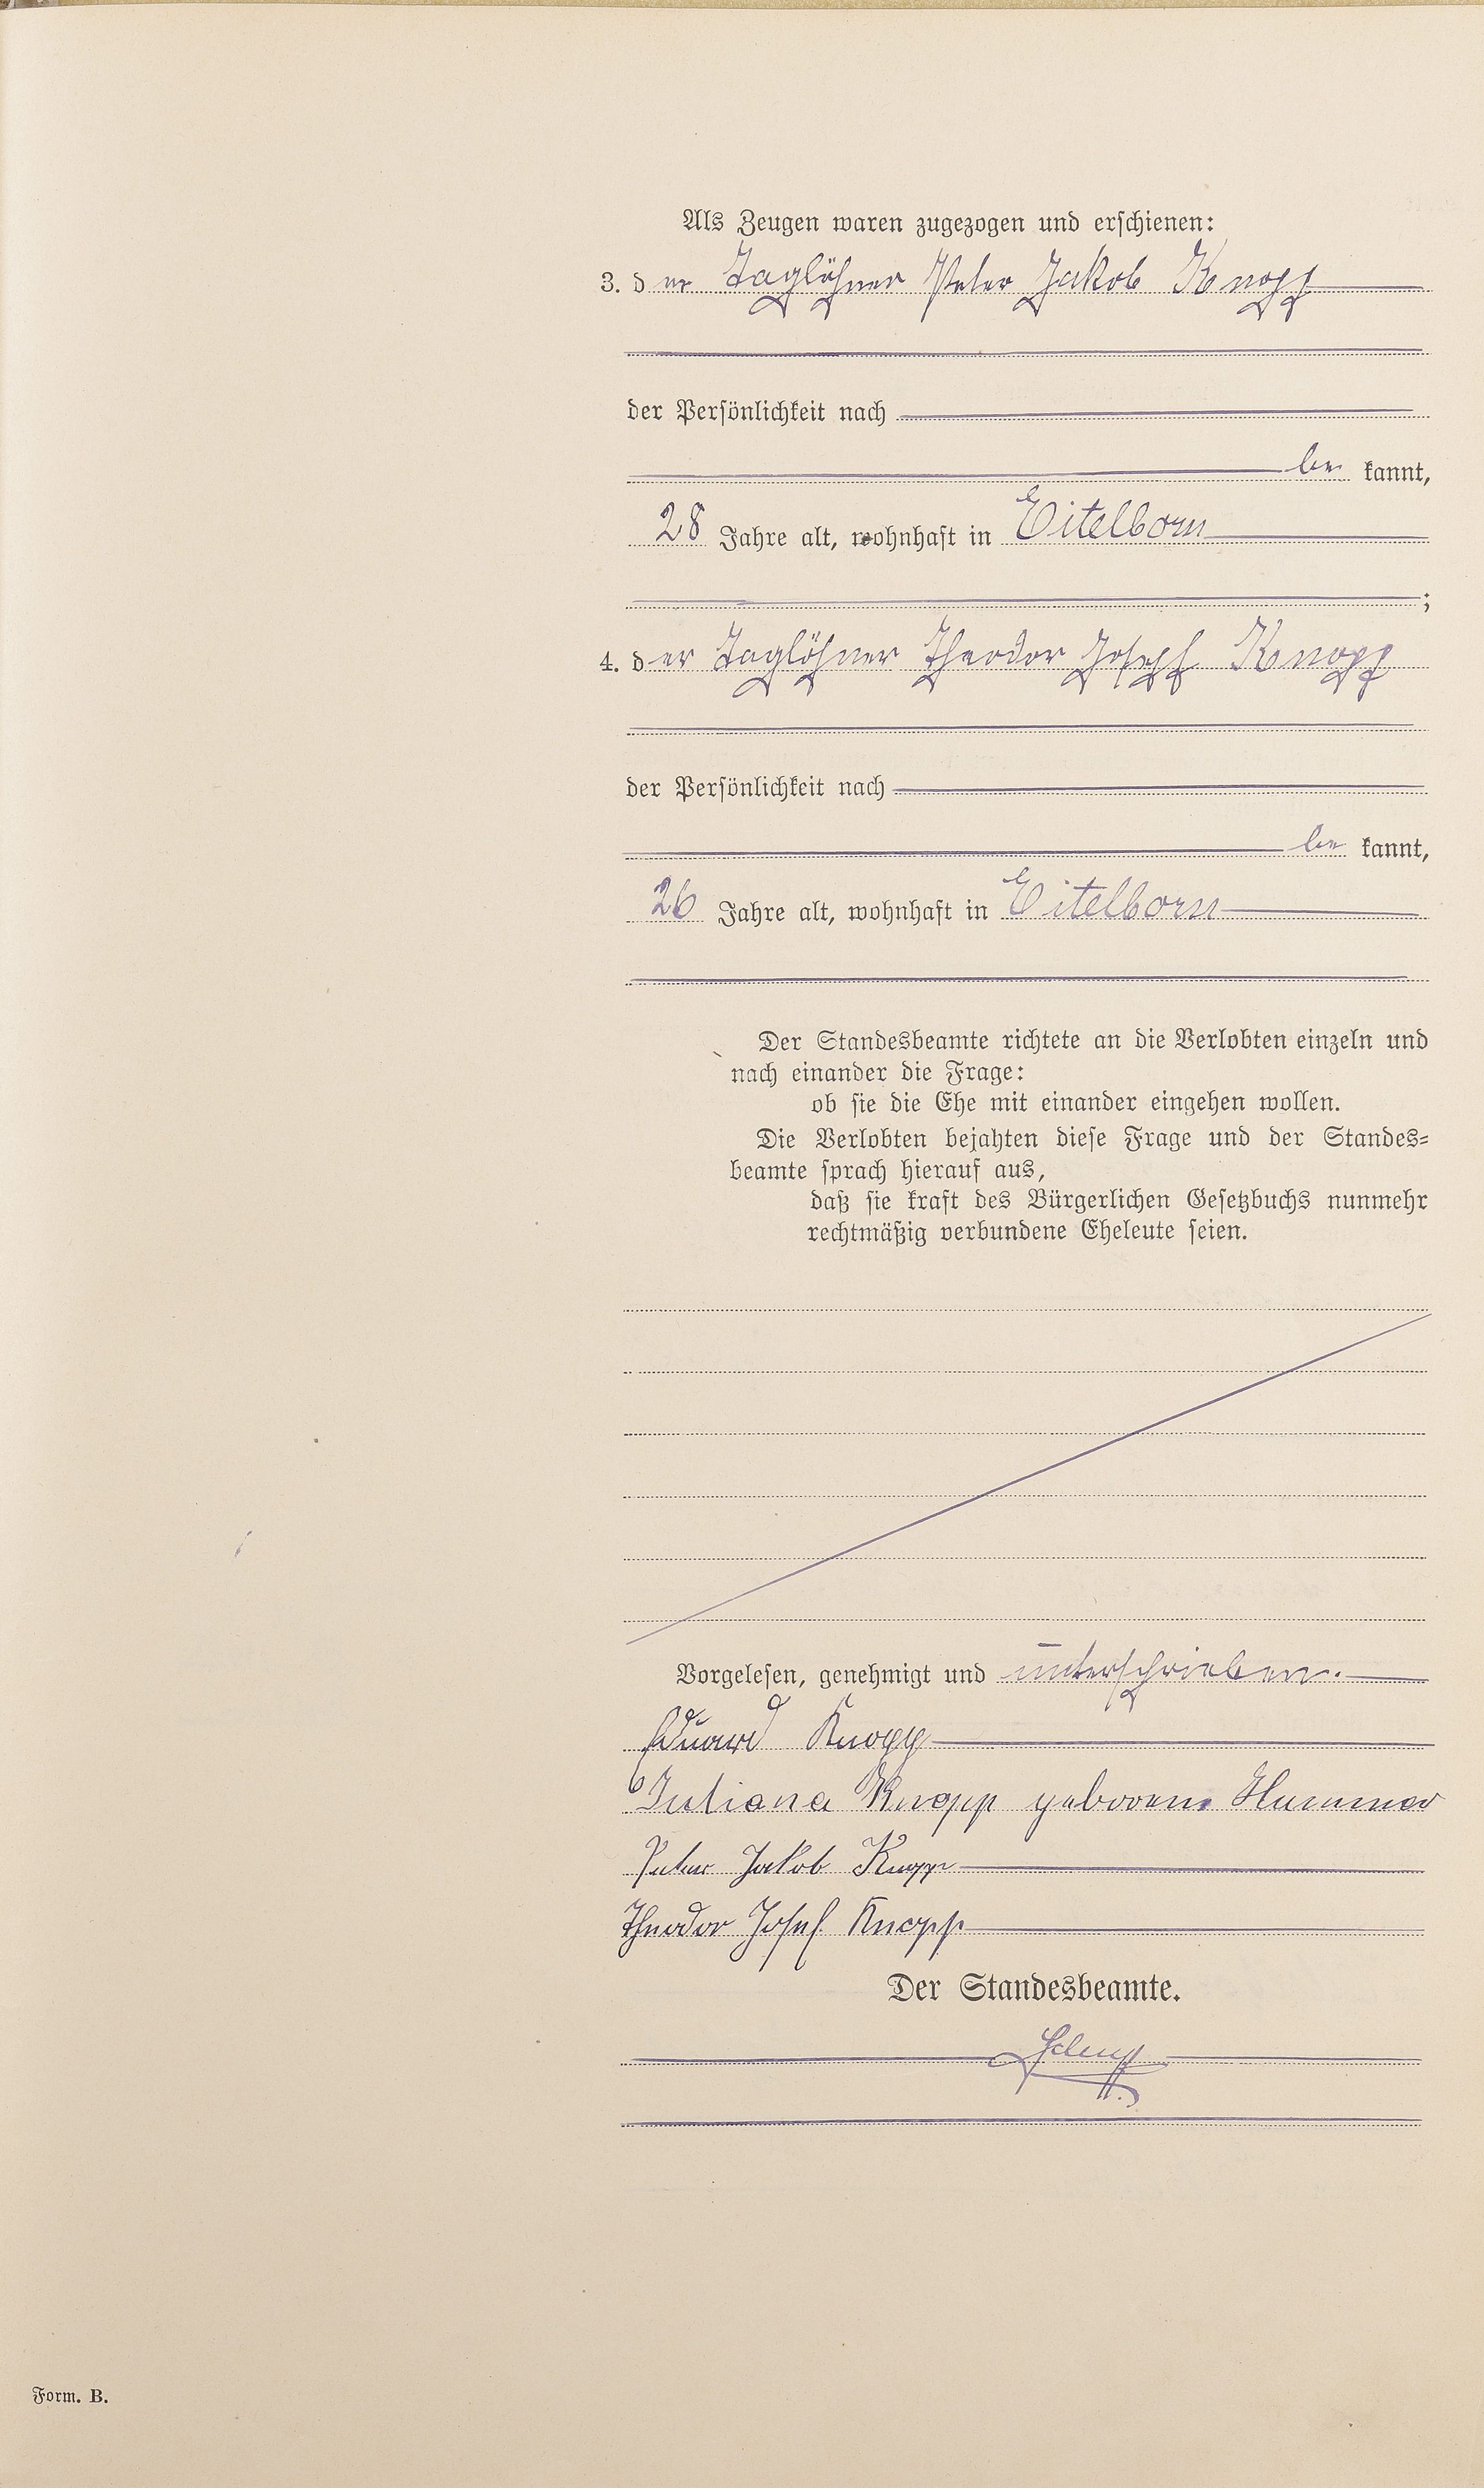 Als Zeugen waren zugezogen und erschienen:
3. der Taglöhner Peter Jakob Knopp
der Persönlichkeit nach
be kannt,
28 Jahre alt, wohnhaft in Eitelborn
;
4. der Taglöhner Theodor Joseph Knopp
der Persönlichkeit nach
be kannt,
26 Jahre alt, wohnhaft in Eitelborn
Der Standesbeamte richtete an die Verlobten einzeln und
nach einander die Frage:
ob sie die Ehe mit einander eingehen wollen.
Die Verlobten bejahten diese Frage und der Standes=
beamte sprach hierauf aus,
daß sie kraft des Bürgerlichen Gesetzbuchs nunmehr
rechtmäßig verbundene Eheleute seien.
Vorgelesen, genehmigt und unterschrieben.
Eduard Knopp
Juliana Knopp geborene Hummer
Peter Jakob Knopp
Theodor Josef Knopp
Der Standesbeamte.
Form. B.